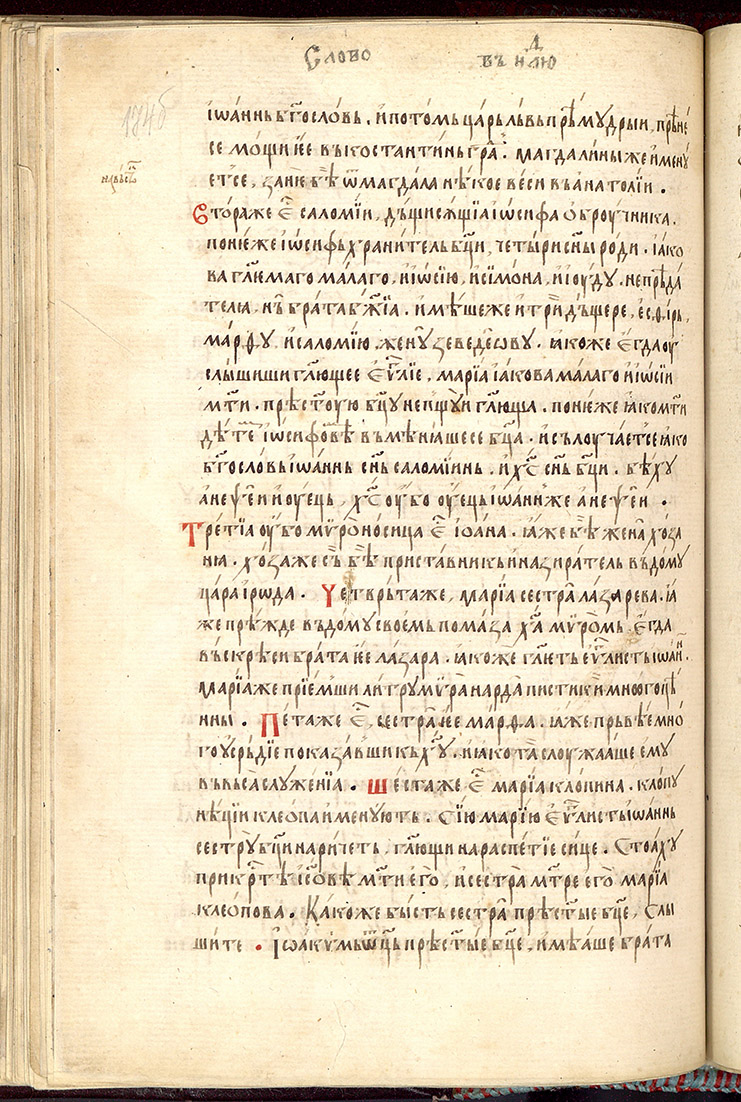 Слово въ н҃лю д҃
174б
їѡаннь бг҃ословь. и потомь царь львь прѣмудрыи, прѣне
се мощи ее въ костантинь гра҃. магдалины же имену
етсе, зане бѣ ѿ магдала нѣкое веси въ анатолїи.
Втораже е҃ саломїи, дъщи сꙋщїа їѡсифа обручника.
понеже їѡсифь хранитель бц҃и, четыри сн҃ы роди. їако
ва гл҃емаго малаго, и їѡсїю, и сїмона, и їоуду. не прѣда
телꙗ, нь брата бж҃їа. имѣше же и три дъщере, есѳирь,
марѳу и саломїю, жену зеведеѡву. ꙗкоже егда оу
слышиши гл҃ющее еѵ҃лїе, марїа їакова малаго и їѡсїи
мт҃и. прѣст҃ую бц҃у непщуи гл҃юща. понеже ꙗко мт҃и
дѣтем їѡсифовѣ въмѣнꙗшесе бц҃а. и сълоучаетсе ꙗко
бг҃ословь їѡаннь сн҃ь саломїинь, и х҃с сн҃ь бц҃и. бѣху
анеѱеи и оуець, х҃с оубо оуець їѡаннже анеѱеи.
Третїа оубо мѵроносица е҃ їоана. ꙗже бѣ жена хоза
нꙗ. хоза же съ бѣ приставникь и назиратель въ дому
цара їрѡда. Четврьтаже, марїа сестра лазарева. ꙗ
же прѣжде въ дому своемь помаза х҃а мѵромь. егда
въскрѣси брата ее лазара. ꙗкоже гл҃еть еѵ҃листь їѡан.
марїаже прїемши литру мѵра нарда пистикїи многоцѣ
нны. Петаже е҃, сестра ее марѳа. ꙗже прьвѣе мно
го усрьдїе показавши къ х҃у. и ꙗко та слоужааше ему
въ вьса служенїа. Шестаже е҃ марїа клопина. клопу
нѣцїи клеопа именують. Сїю марїю еѵ҃листь їѡаннь
сестру бц҃и наричеть, гл҃ющи на распетїе сице. Стоаху
при кр҃тѣ їс҃овѣ мт҃и его, и сестра мт҃ре его марїа
клеопова. Како же бысть сестра прѣст҃ые бц҃е, слы
шите. Їѡакѵмь ѿц҃ь прѣст҃ые бц҃е, имѣаше брата